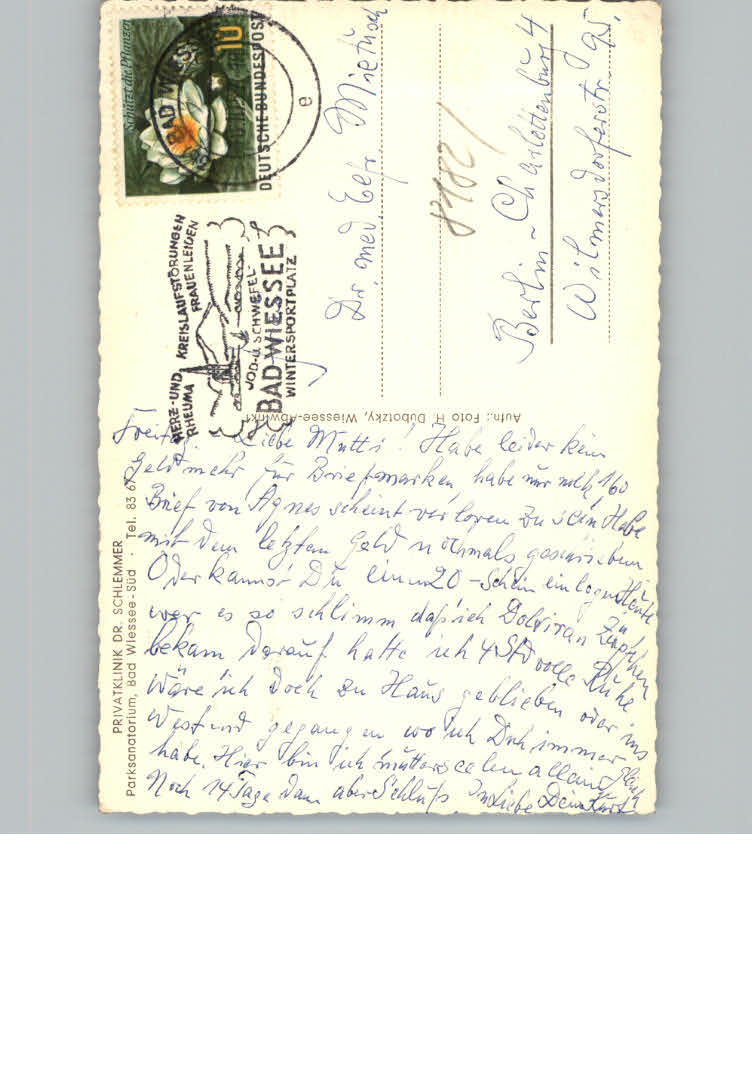 Schützt die Pflanzen
10
DEUTSCHE BUNDESPOST
BAD WIESSEE
e
HERZ- UND KREISLAUFSTÖRUNGEN
RHEUMA FRAUENLEIDEN
JOD- U. SCHWEFEL-
BAD WIESSEE
WINTERSPORTPLATZ
Dr. med.
8182/
Berlin-Charlottenburg 4
Wilmersdorferstr. 95.
Aufn.: Foto H. Dubotzky, Wiessee-Abwinkl
PRIVATKLINIK DR. SCHLEMMER
Parksanatorium, Bad Wiessee-Süd · Tel. 83 67
Freitag. Liebe Mutti! Habe leider kein
Geld mehr für Briefmarken, habe nur noch 1,60
Brief von Agnes scheint verloren zu sein Habe
mit dem letzten Geld nochmals geschrieben
Oder kannst Du einen 20-Schein einlegen Heute
war es so schlimm daß ich Dolviran
bekam Darauf hatte ich 4 Std volle Ruhe
Wäre ich doch zu Haus geblieben oder ins
Westend gegangen wo ich Dich immer
habe. Hier bin ich mutterseelenallein
Noch 14 Tage dann aber Schluß In Liebe Dein Kurt